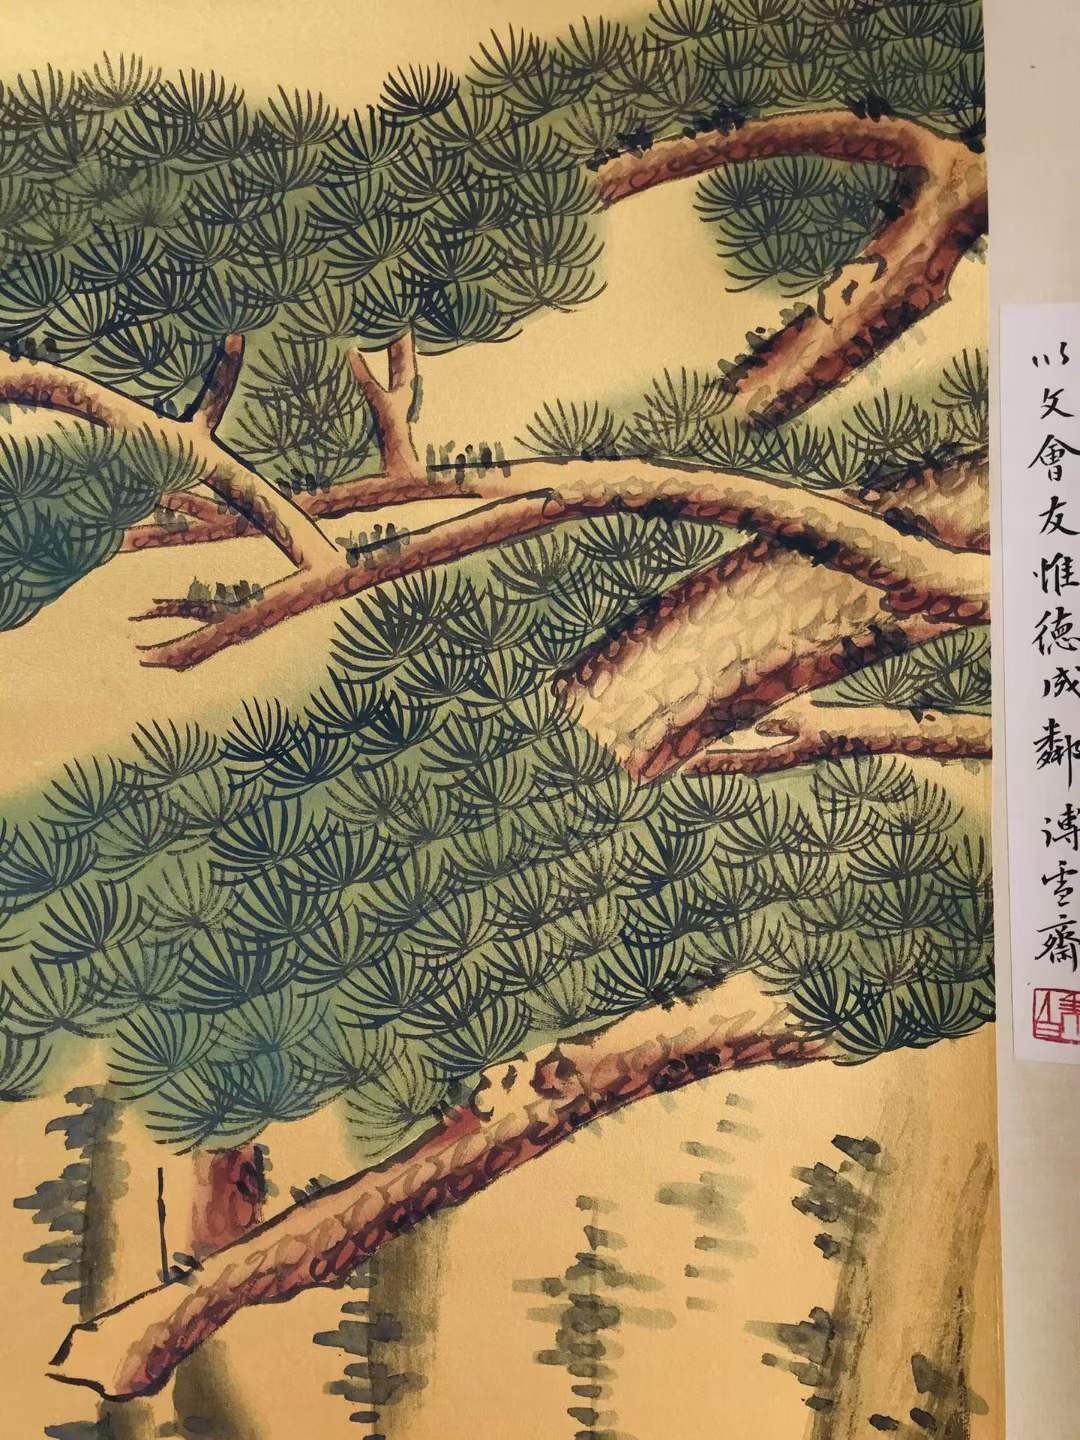 以文會友惟德成鄰溥雪齋